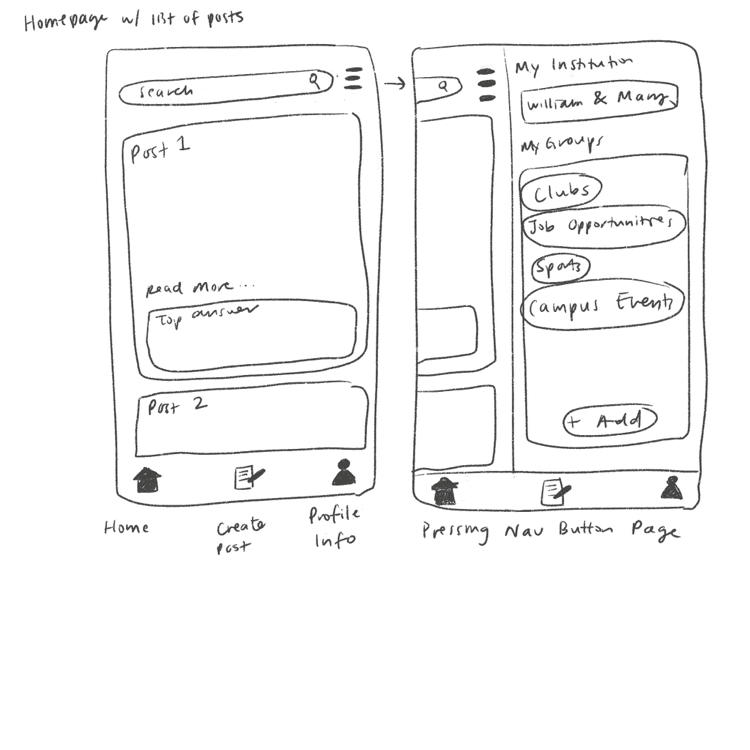 Homepage w/ list of posts
search
Post 1
Read more...
Top answer
Post 2
Home
Create Post
Profile Info
My Institution
William & Mary
My Groups
Clubs
Job Opportunities
Sports
Campus Events
+ Add
Pressing Nav Button Page